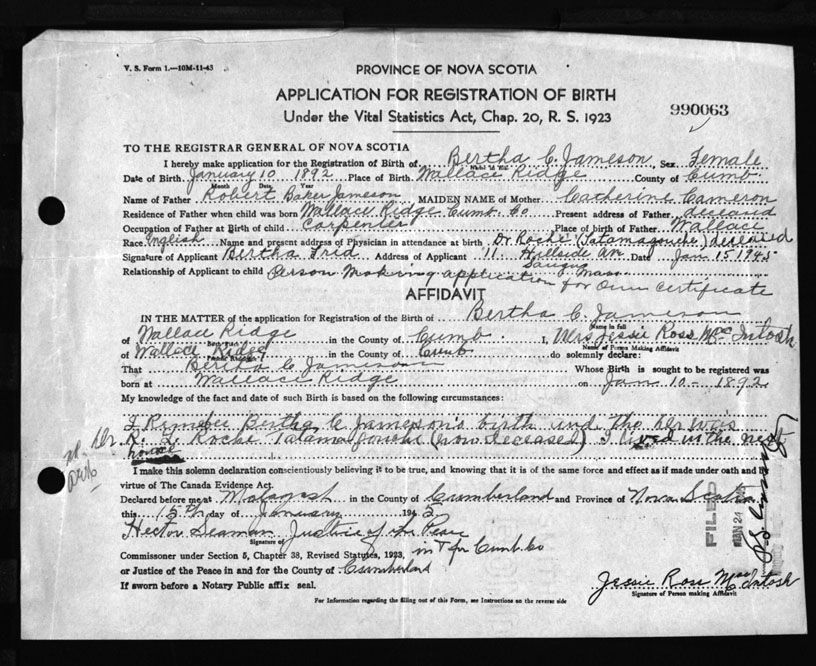 V. S. Form 1.—10M-11-43
PROVINCE OF NOVA SCOTIA
APPLICATION FOR REGISTRATION OF BIRTH
990063
Under the Vital Statistics Act, Chap. 20, R. S. 1923
TO THE REGISTRAR GENERAL OF NOVA SCOTIA
I hereby make application for the Registration of Birth of Bertha C. Jameson, Sex Female
Date of Birth January 10 1892 Place of Birth Wallace Ridge County of Cumb
Month Date Year
Name of Father Robert Baker Jameson MAIDEN NAME of Mother Catherine Cameron
Residence of Father when child was born Wallace Ridge Cumb. Co Present address of Father deceased
Occupation of Father at Birth of child Carpenter Place of birth of Father Wallace
Race English Name and present address of Physician in attendance at birth Dr Roche (Tatamagouche) deceased
Signature of Applicant Bertha Address of Applicant 11 Hillside Av. Date Jan 15 1945
Mass.
Relationship of Applicant to child Person Making application for Own Certificate
AFFIDAVIT
IN THE MATTER of the application for Registration of the Birth of Bertha C. Jameson
Name in full
of Wallace Ridge in the County of Cumb. I, Mrs Jessie Ross McIntosh
Name of Person Making Affidavit
of Wallace Ridge in the County of Cumb do solemnly declare:
That Bertha C Jameson Whose Birth is sought to be registered was
born at Wallace Ridge on Jan 10 - 1892
My knowledge of the fact and date of such Birth is based on the following circumstances:
Bertha C Jameson's birth and the Dr was
Dr. R. L. Roche Tatamagouche (now deceased) I lived in the next
house
I make this solemn declaration conscientiously believing it to be true, and knowing that it is of the same force and effect as if made under oath and by
virtue of The Canada Evidence Act.
Declared before me at Malagash in the County of Cumberland and Province of Nova Scotia
this 15th day of January 1945
Hector Seaman Justice of the Peace
Signature of
Commissioner under Section 5, Chapter 38, Revised Statutes, 1923, in & for Cumb. Co
or Justice of the Peace in and for the County of Cumberland
If sworn before a Notary Public affix seal.
FILED
JAN 24
Jessie Ross MacIntosh
Signature of Person making Affidavit
For Information regarding the filling out of this Form, see Instructions on the reverse side